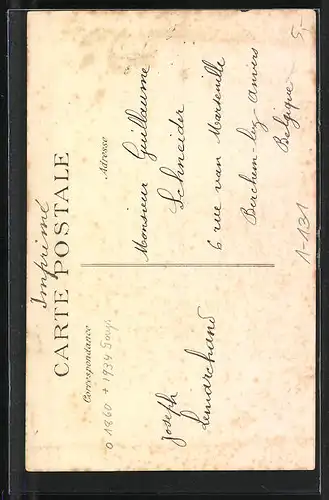 Imprimé
CARTE POSTALE
Correspondance
Adresse
o 1860 + 1934
Joseph
Lemarchand
Monsieur Guillaume
Schneider
6 rue van Marseille
Berchem-lez-Anvers
Belgique
1-131
5,-